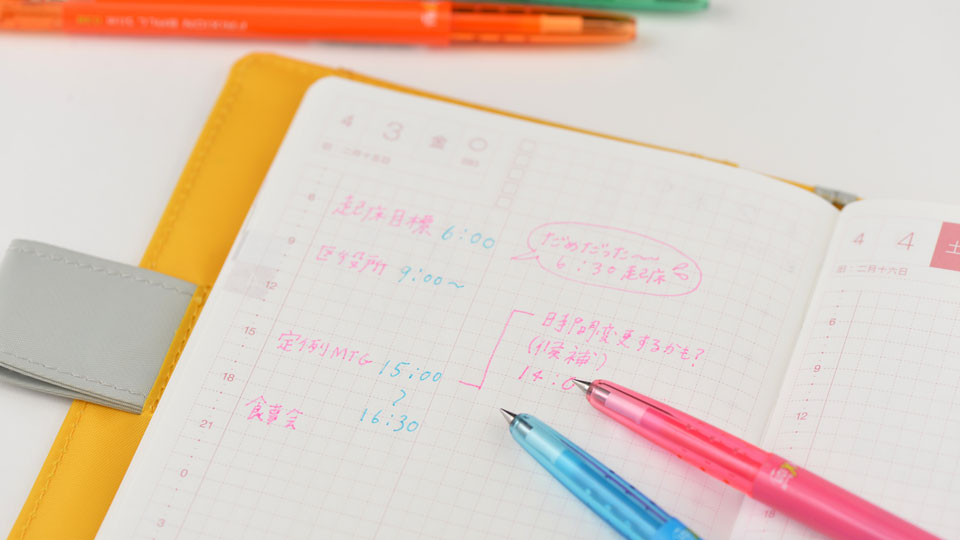 4 3 金
旧:二月十五日
6
起床目標 6:00
だめだった〜〜
6:30起床
9
区役所 9:00〜
12
15
定例MTG 15:00
〜
16:30
時間変更するかも?
(候補)
14:0
18
食事会
21
0
3
4 4 土
旧:二月十六日
6
9
12
18